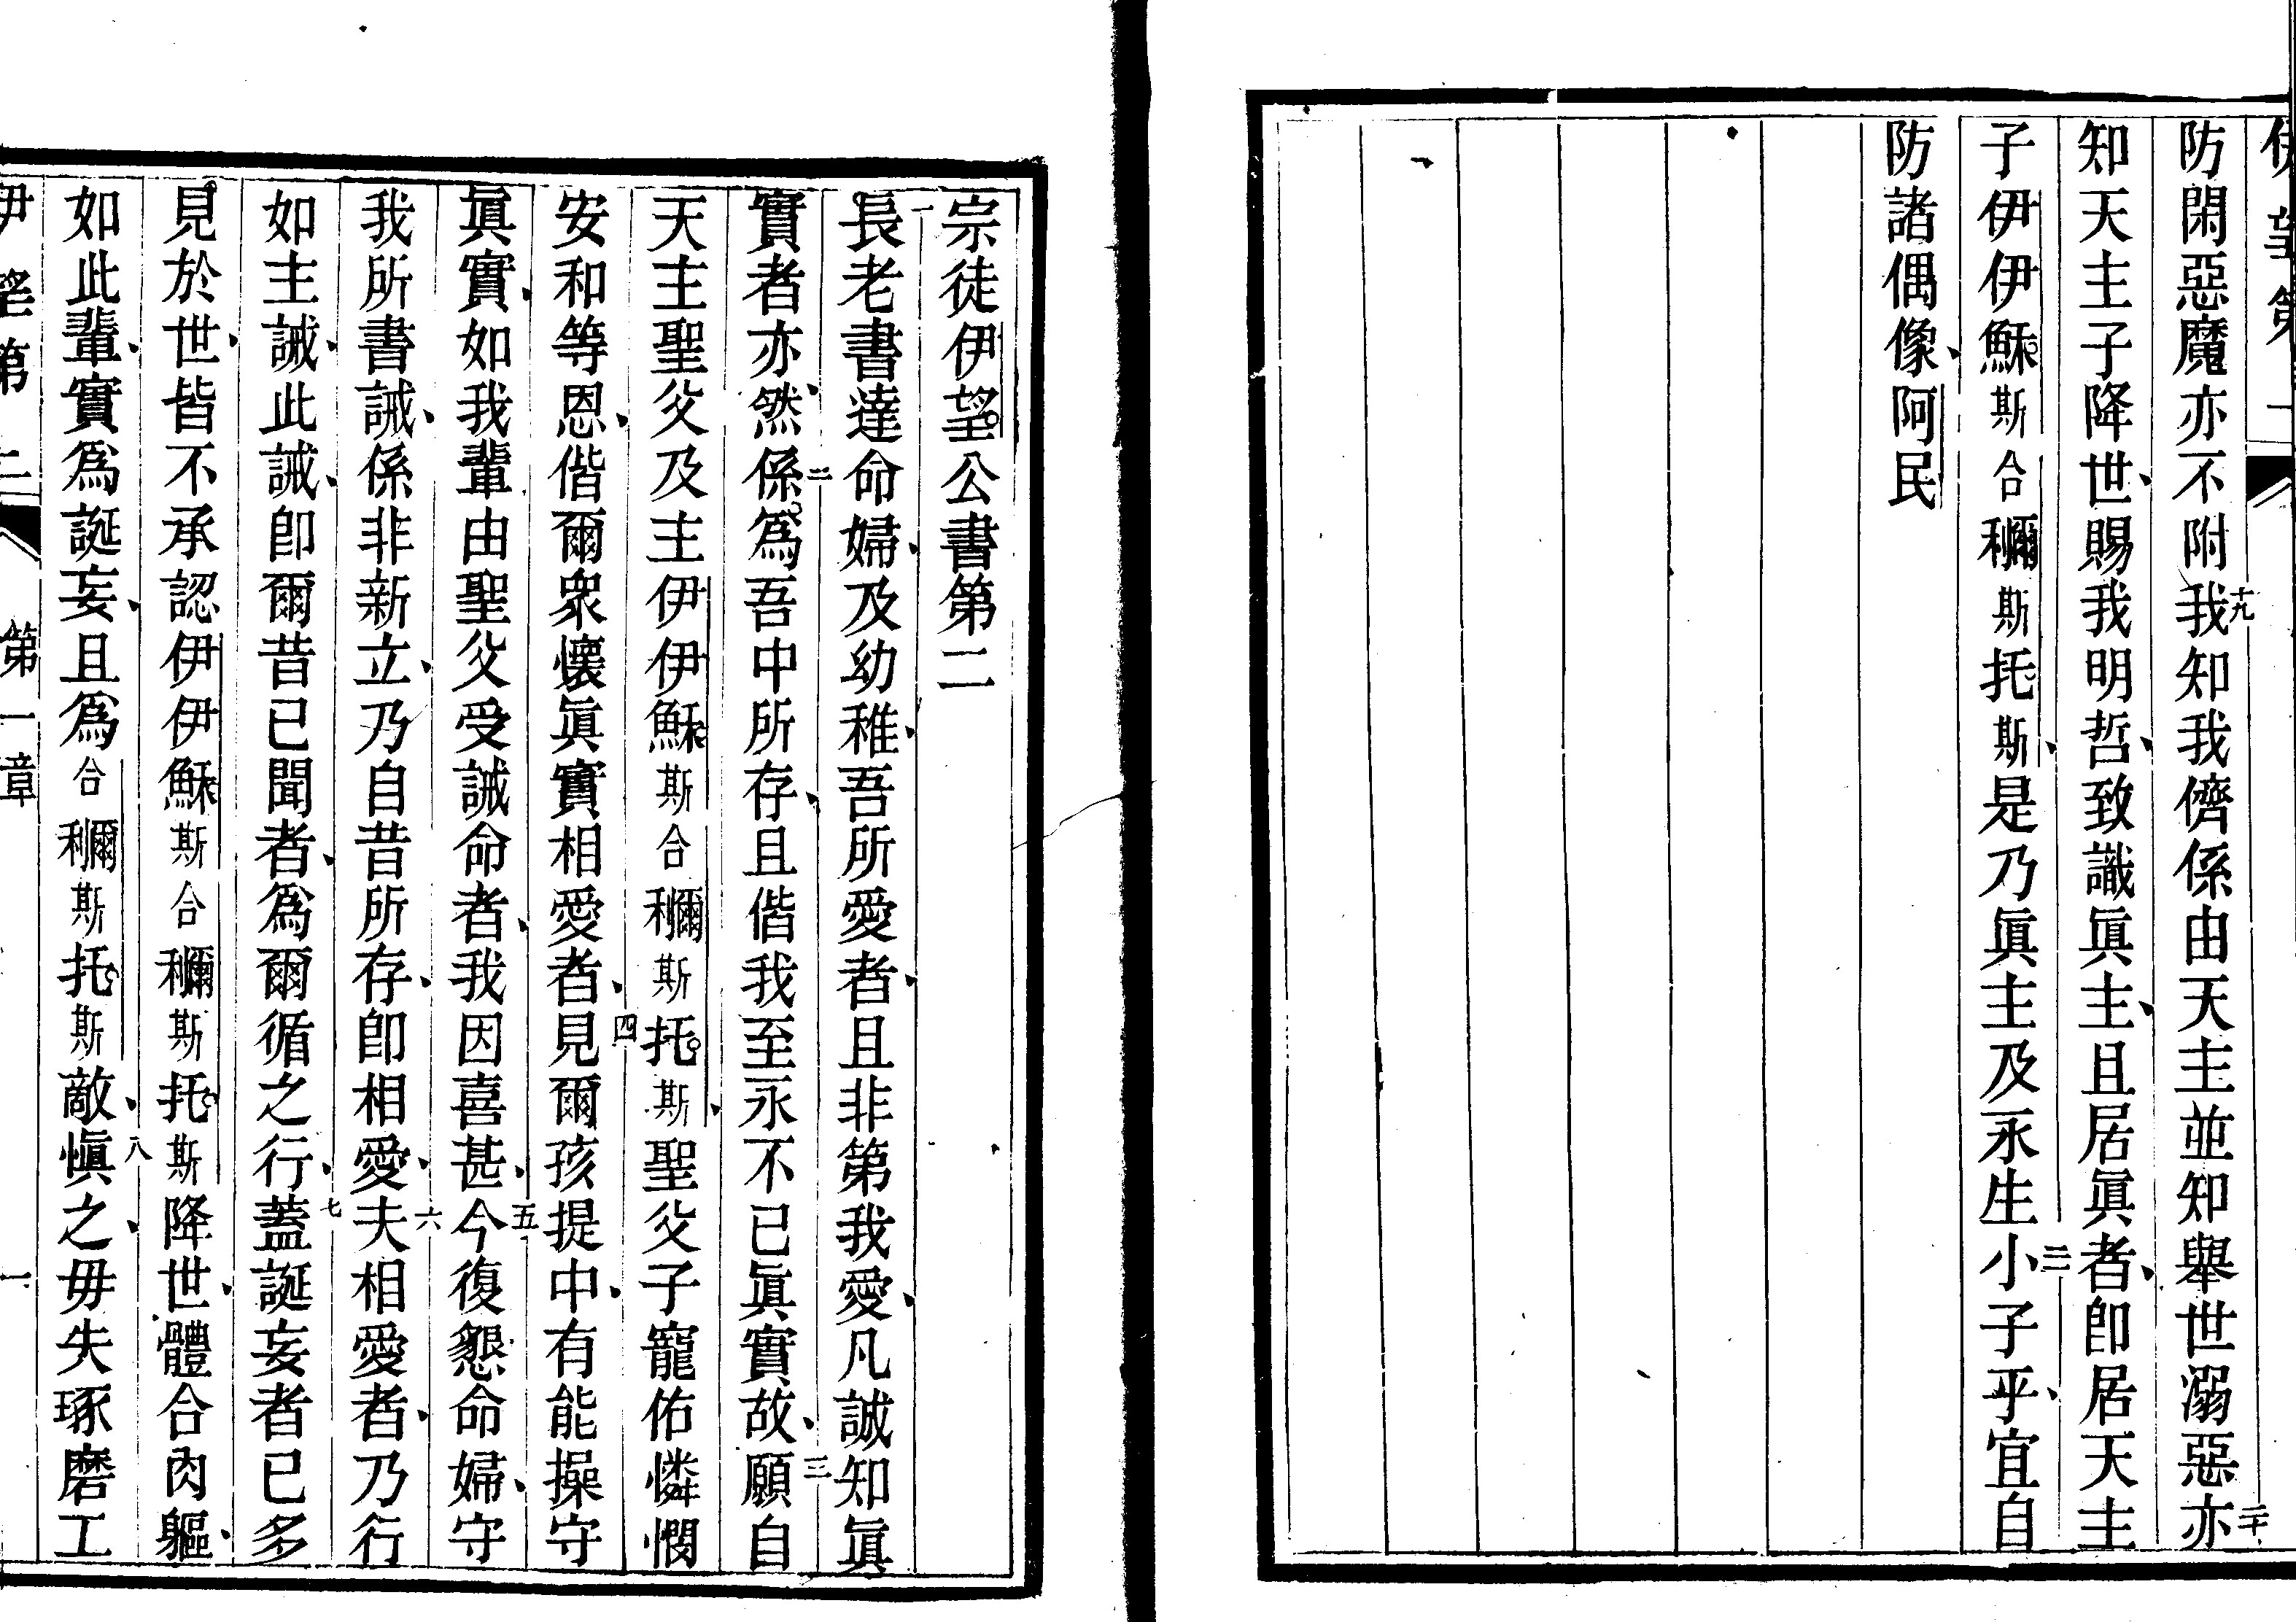 伊望第一
防閑惡魔亦不附十九我知我儕係由天主並知舉世溺惡二十亦
知天主子降世、賜我明哲、致識眞主、且居眞者、卽居天主
子伊伊穌斯合𥛬斯托斯、是乃眞主及永生二一小子乎、宜自
防諸偶像、阿民
宗徒伊望公書第二
一長老書達命婦、及幼稚、吾所愛者、且非第我愛、凡誠知眞
實者亦然、二係爲吾中所存、且偕我至永不已眞實故、三願自
天主聖父及主伊伊穌斯合𥛬斯托斯、聖父子寵佑憐憫
安和等恩、偕爾衆懷眞實相愛者、四見爾孩提中、有能操守
眞實、如我輩由聖父受誡命者、我因喜甚、五今復懇命婦、守
我所書誡、係非新立、乃自昔所存、卽相愛、六夫相愛者、乃行
如主誡、此誡、卽爾昔已聞者、爲爾循之行、七蓋誕妄者已多
見於世、皆不承認伊伊穌斯合𥛬斯托斯降世、體合肉軀、
如此輩、實爲誕妄、且爲合𥛬斯托斯敵、八愼之、毋失琢磨工
伊望第二 第一章 一